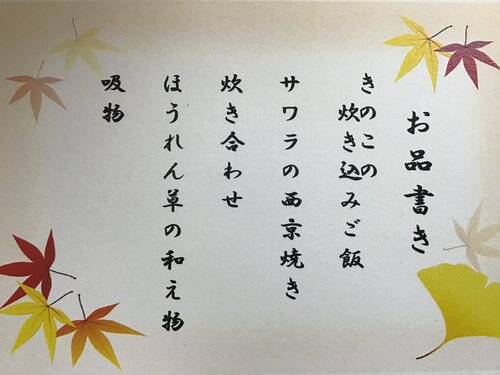 お品書き
きのこの
炊き込みご飯
サワラの西京焼き
炊き合わせ
ほうれん草の和え物
吸物